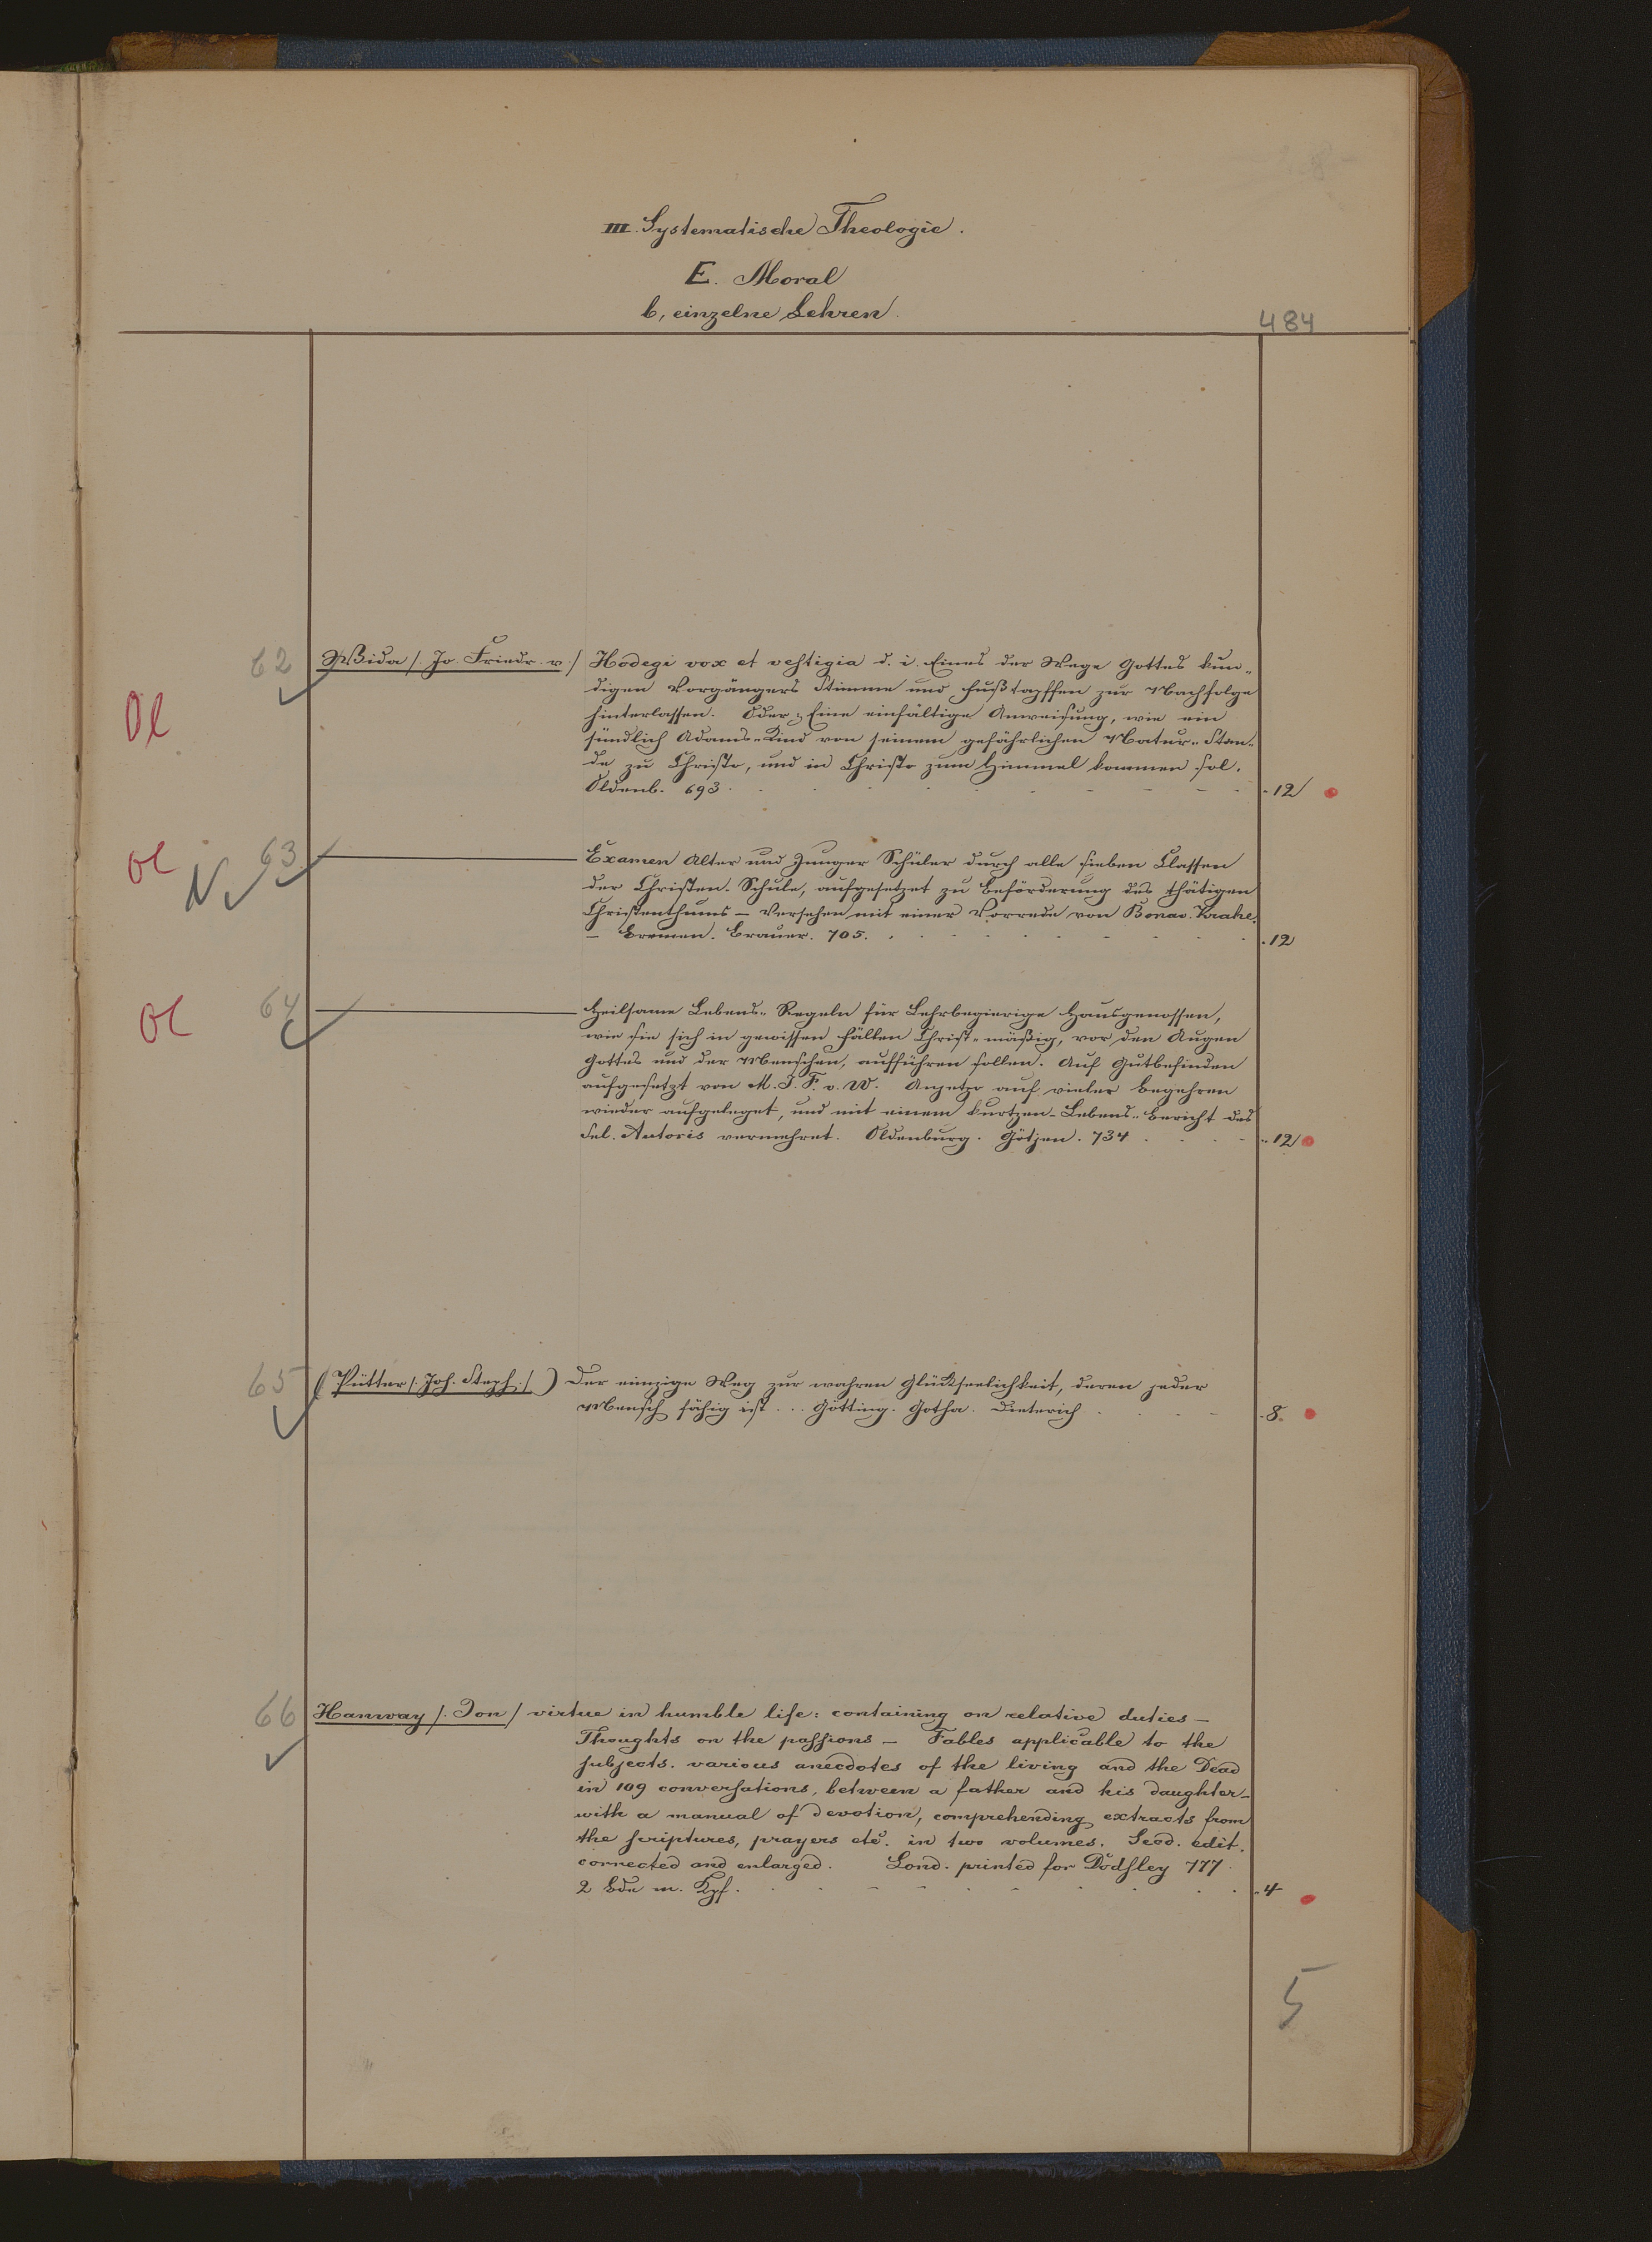 III. Systematische Theologie.
E. Moral
b, einzelne Lehren.
484
62 Wida /. Jo. Friedr. v./ Hodegi vox et vestigia d. i. Eines der Wege Gottes kun-
digen Vorgängers Stimme und Fußtapffen zur Nachfolge
hinterlassen. Oder: Eine einfältige Anweisung, wie ein
Ol
sündlich Adams-Kind von seinem gefährlichen Natur-Stan-
de zu Christo, und in Christo zum Himmel kommen sol.
Oldenb. 693. 12
Ol N 63 Examen Alter und Junger Schüler durch alle sieben Classen
der Christen-Schule, aufgesetzet zu Beförderung des thätigen
Christenthums – Versehen mit einer Vorrede von Bonav. Krahe.
– Bremen. Brauer. 705. 12
Ol 64 Heilsame Lebens-Regeln für Lehrbegierige Hausgenossen,
wie sie sich in gewissen Fällen Christ-mäßig, vor den Augen
Gottes und der Menschen, aufführen sollen. Auf Gutbefinden
aufgesetzt von M. J. F. v. W. Anjetzo auf vieler Begehren
wieder aufgeleget, und mit einem kurtzen Lebens-Bericht des
Sel. Autoris vermehret. Oldenburg. Götjen. 734 12
65 (Pütter /. Joh. Steph. /.) Der einzige Weg zur wahren Glückseelichkeit, deren jeder
Mensch fähig ist... Götting. Gotha. Dieterich 8.
66 Hanway /. Jon / virtue in humble life: containing on relative duties –
Thoughts on the passions – Fables applicable to the
subjects. various anecdotes of the living and the Dead
in 109 conversations, between a father and his daughter –
with a manual of devotion, comprehending extracts from
the scriptures, prayers etc. in two volumes. Secd. edit.
corrected and enlarged. Lond. printed for Dodsley 777.
2 Bde m. Kpf. 4
5